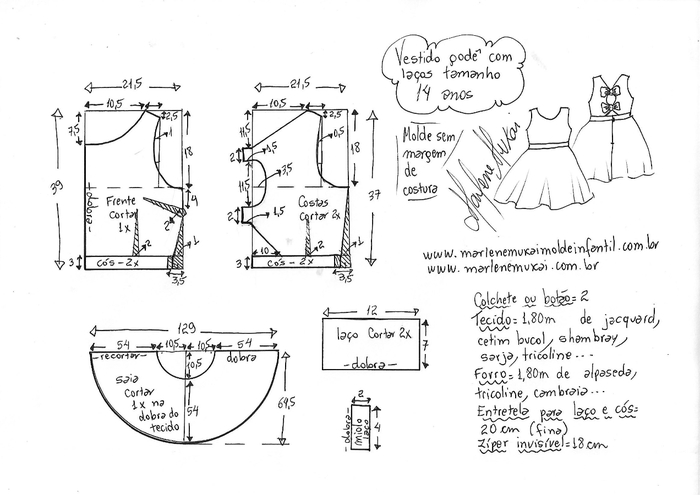 Vestido podê com
laços tamanho
14 anos
Molde sem
margem
de
costura
Marlene Mukai
21,5
10,5
2,5
7,5
1
18
39
dobra
Frente
Cortar
1x
4
2
2
1
3
cós - 2x
3,5
21,5
10,5
2,5
11,5
0,5
1,5
2
18
3,5
11,5
37
Costas
Cortar 2x
2
1,5
10
2
1
3
cós - 2x
3,5
www.marlenemukaimoldeinfantil.com.br
www.marlenemukai.com.br
129
54
10,5
10,5
54
recortar
10,5
dobra
saia
Cortar
1x na
dobra do
tecido
54
64,5
12
laço Cortar 2x
7
dobra
2
dobra
miolo
laço
4
Colchete ou botão = 2
Tecido = 1,80m de jacquard,
cetim bucol, shambray,
sarja, tricoline...
Forro = 1,80m de alpaseda,
tricoline, cambraia...
Entretela para laço e cós =
20 cm (fina)
Zíper invisível = 18 cm